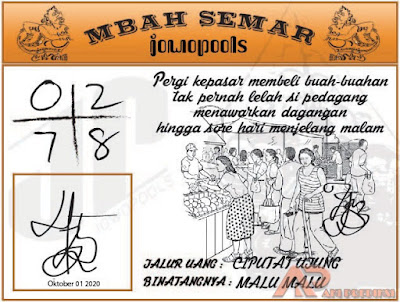 MBAH SEMAR
jowopools
Pergi kepasar membeli buah-buahan
tak pernah lelah si pedagang
menawarkan dagangan
hingga sore hari menjelang malam
0 2
7 8
Oktober 01 2020
JALUR UANG : CIPUTAT UJUNG
BINATANGNYA : MALU MALU